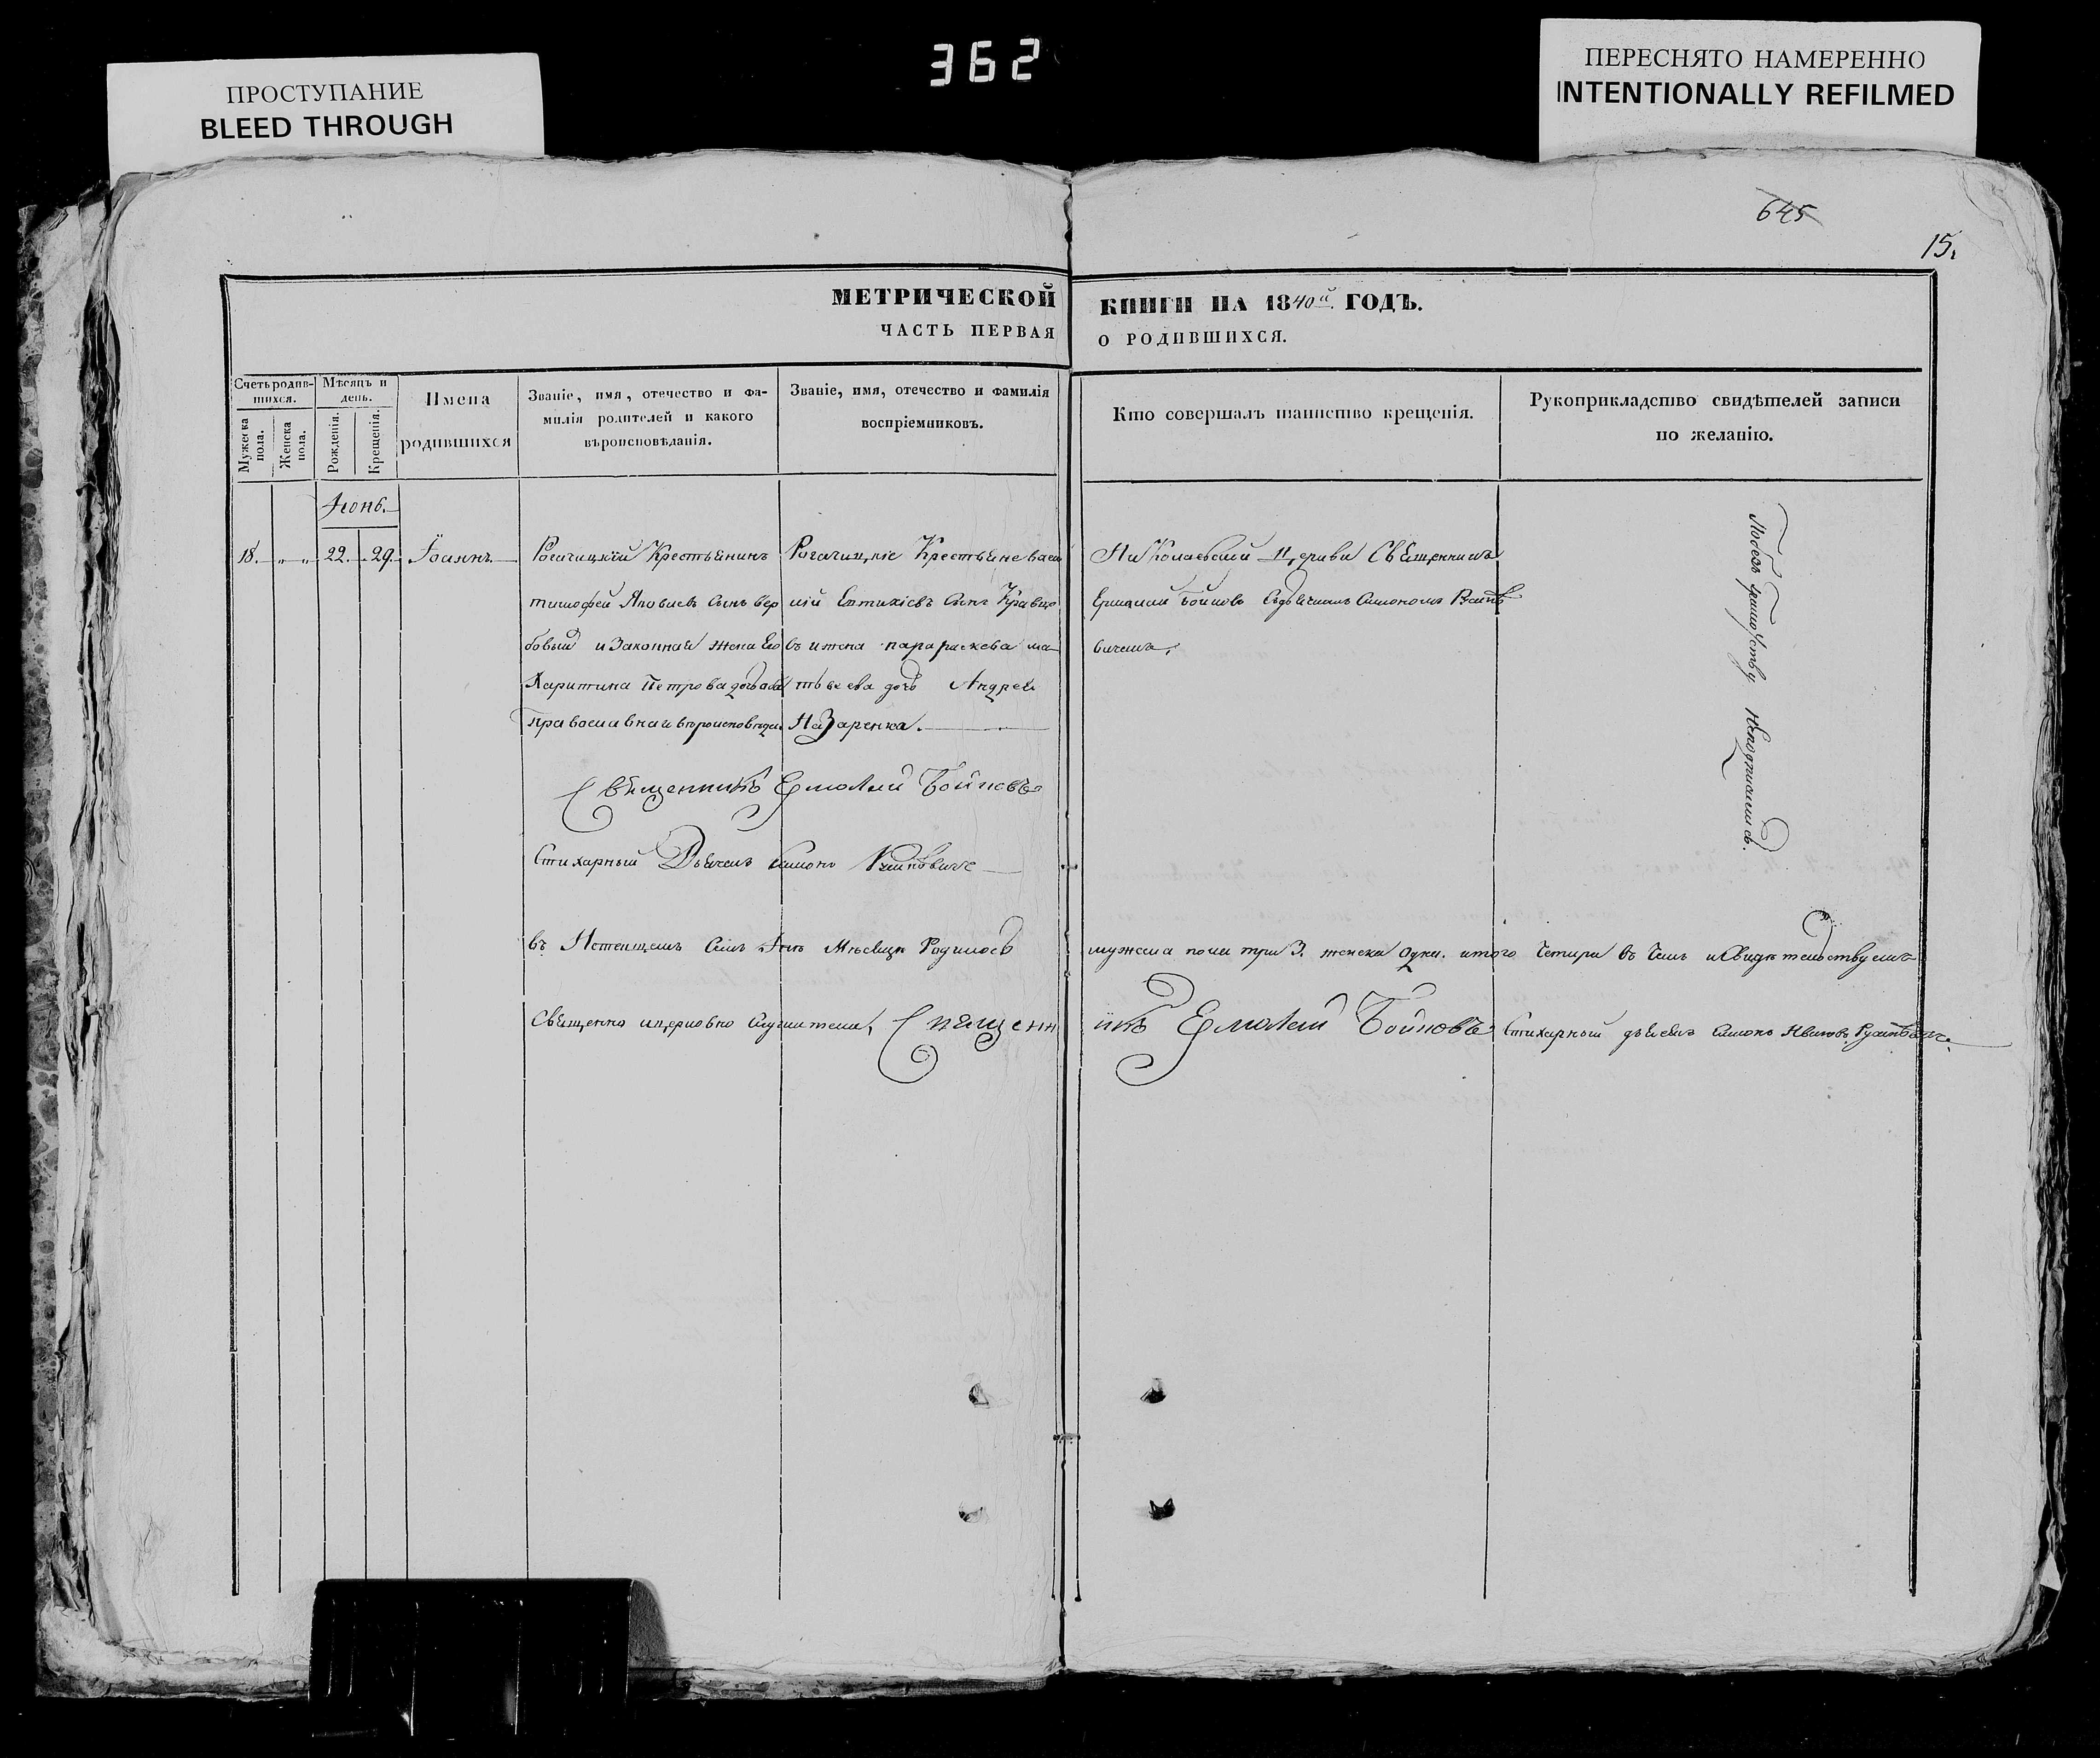 362
ПРОСТУПАНИЕ
BLEED THROUGH
ПЕРЕСНЯТО НАМЕРЕННО
INTENTIONALLY REFILMED
645
15.
МЕТРИЧЕСКОЙ КНИГИ НА 1840й ГОДЪ.
ЧАСТЬ ПЕРВАЯ О РОДИВШИХСЯ.
Счетъ родив-
шихся.
Мужеска
пола.
Женска
пола.
Мѣсяцъ и
день.
Рожденія.
Крещенія.
Имена
родившихся
Званіе, имя, отечество и фа-
милія родителей и какого
вѣроисповѣданія.
Званіе, имя, отечество и фамилія
воспріемниковъ.
Кто совершалъ таинство крещенія.
Рукоприкладство свидѣтелей записи
по желанію.
Іюнь.
18. „ „ 22. 29. Іоаннъ
Рогачицкій Крестьянинъ
тимофей Яковлевъ Сынъ Вер
бовый и Законная жена Его
Харитина Петрова дочь оба
православнаго вѣроисповѣдан
Рогачицкіе Крестьяне Васи
лій Евтихіевъ Сынъ Кравцо
въ и жена параскева ма
твѣева дочь Андрея
Назаренка.
Николаевской Церкви Священникъ
Ермолай Бойновъ Съ дьячкомъ Симономъ
вичемъ,
Священникъ Ермолай Бойновъ
Стихарный Дьячекъ Симонъ
въ Истекшемъ Семъ Іюнѣ Мѣсяцѣ Родилось мужеска пола три 3. женска одна. итого Четыри въ Чемъ и Свидѣтельствуемъ
Священно и церковно служители, Священникъ Ермолай Бойновъ Стихарный дьячекъ Симонъ Ивановъ